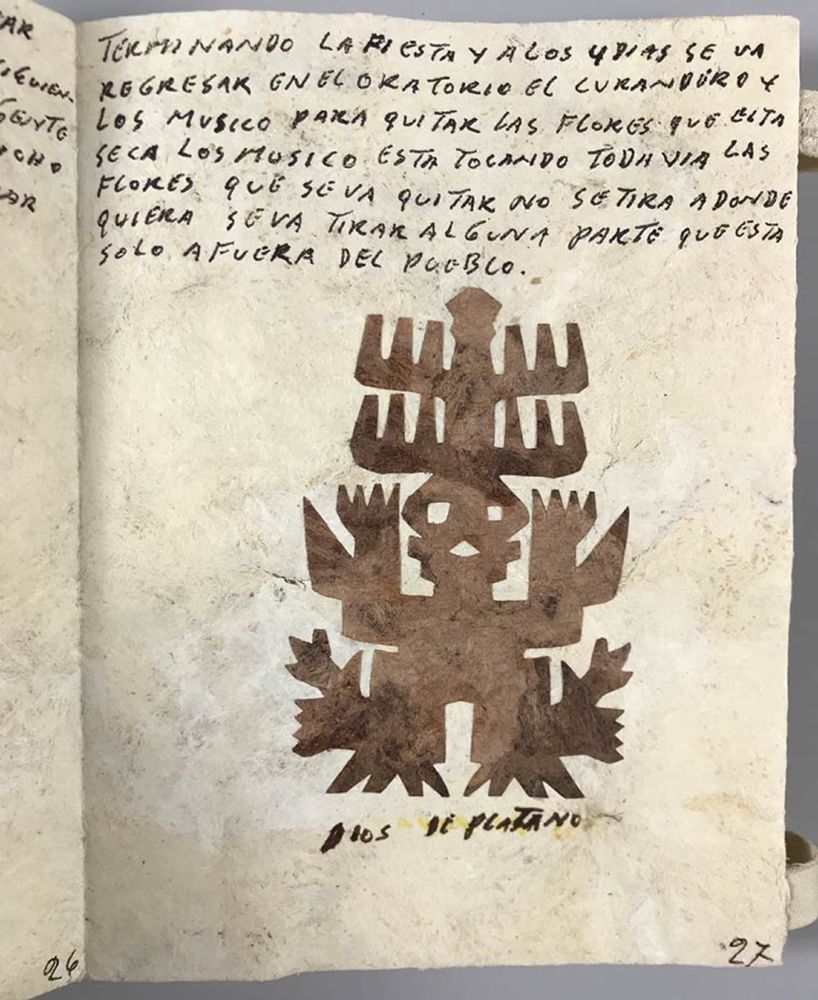 TERMINANDO LA FIESTA Y A LOS 4 DIAS SE VA
REGRESAR EN EL ORATORIO EL CURANDERO Y
LOS MUSICO PARA QUITAR LAS FLORES QUE ESTA
SECA LOS MUSICO ESTA TOCANDO TODAVIA LAS
FLORES QUE SE VA QUITAR NO SE TIRA ADONDE
QUIERA SE VA TIRAR ALGUNA PARTE QUE ESTA
SOLO AFUERA DEL PUEBLO.
DIOS DE PLATANO
26
27